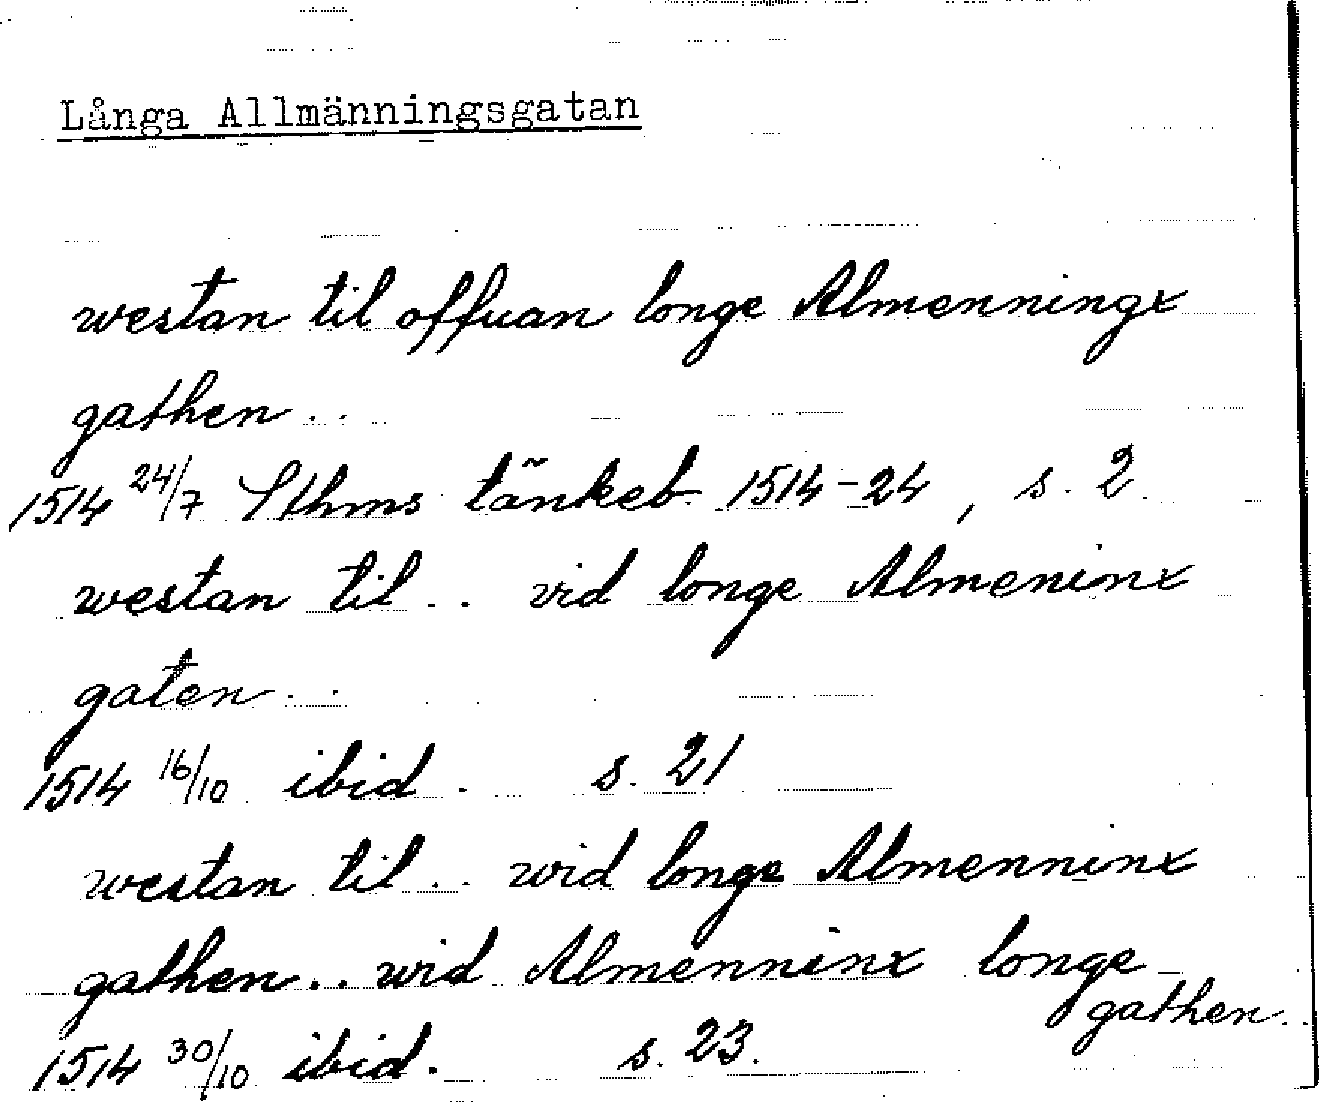 Långa Allmänningsgatan
westan til offuan longe Almenningx
gathen ..
1514 24/7 Sthms tänkeb 1514-24, s. 2.
westan til .. vid longe Almeninx
gaten ..
1514 16/10 ibid. s. 21
westan til .. wid longe Almenninx
gathen .. wid Almenninx longe
gathen.
1514 30/10 ibid. s. 23.